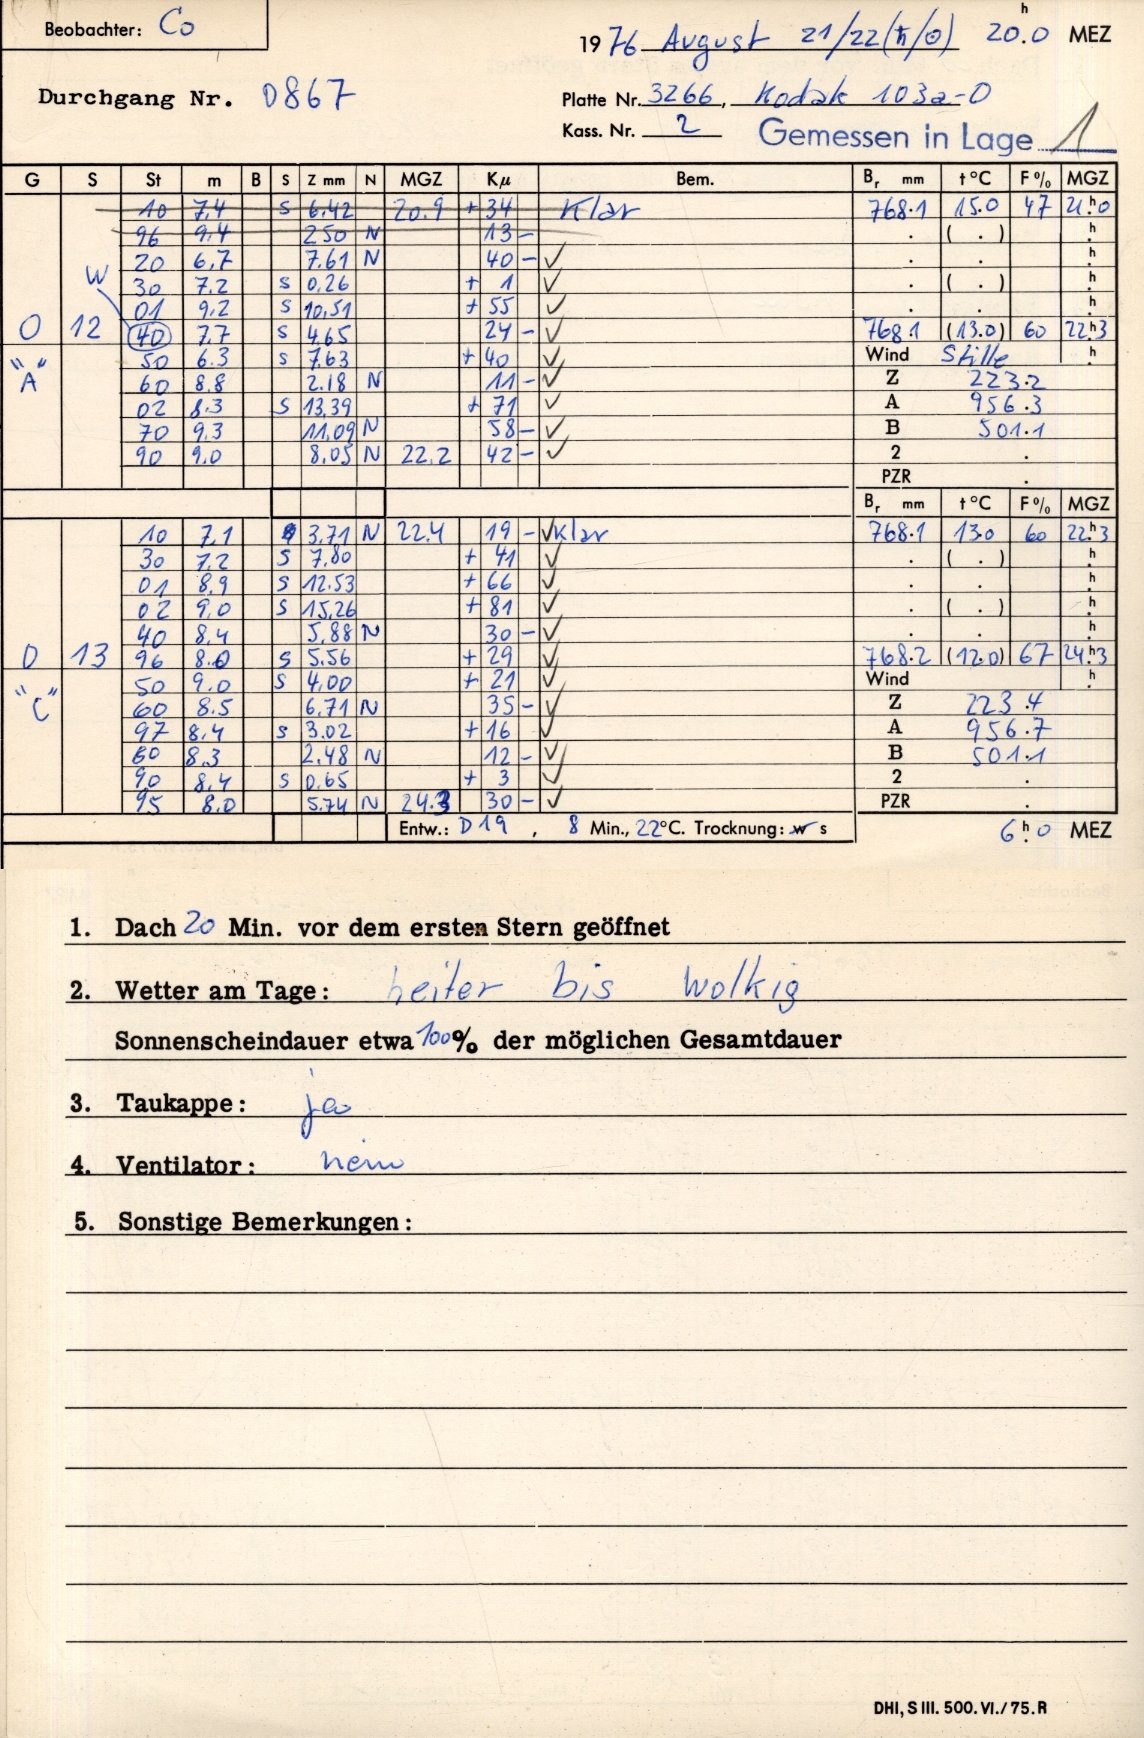 Beobachter: Co
1976 August 21/22 (ħ/⊙) 20.h0 MEZ
Durchgang Nr. 0867
Platte Nr. 3266, Kodak 103a-O
Kass. Nr. 2 Gemessen in Lage 1
G S St m B S Z mm N MGZ Kμ Bem. Br mm t °C F % MGZ
10 7,4 S 6,42 20.9 + 34 Klar 768.1 15.0 47 21.h0
96 9,4 2 50 N 13 - . ( . ) h
20 6,7 7.61 N 40 - ✓ . . h
W 30 7.2 S 0,26 + 1 ✓ . ( . ) h
01 9,2 S 10,51 + 55 ✓ . . h
0 12 40 7,7 S 4,65 24 - ✓ 768.1 (13.0) 60 22.h3
"A" 50 6.3 S 7,63 + 40 ✓ Wind Stille h
60 8.8 2.18 N 11 - ✓ Z 223.2
02 8.3 S 13,39 + 71 ✓ A 956.3
70 9.3 11,09 N 58 - ✓ B 501.1
90 9.0 8,05 N 22.2 42 - ✓ 2 .
PZR .
Br mm t °C F % MGZ
10 7,1 3.71 N 22.4 19 - ✓ Klar 768.1 13.0 60 22.h3
30 7,2 S 7,80 + 41 ✓ . ( . ) h
01 8,9 S 12.53 + 66 ✓ . . h
02 9,0 S 15,26 + 81 ✓ . ( . ) h
40 8,4 5,88 N 30 - ✓ . . h
0 13 96 8.0 S 5.56 + 29 ✓ 768.2 (12.0) 67 24.h3
"C" 50 9.0 S 4,00 + 21 ✓ Wind h
60 8.5 6,71 N 35 - ✓ Z 223.4
97 8,4 S 3.02 + 16 ✓ A 956.7
60 8.3 2,48 N 12 - ✓ B 501.1
90 8,4 S 0.65 + 3 ✓ 2 .
95 8.0 5.74 N 24.3 30 - ✓ PZR .
Entw.: D 19 , 8 Min., 22°C. Trocknung: w s 6.h0 MEZ
1. Dach 20 Min. vor dem ersten Stern geöffnet
2. Wetter am Tage: heiter bis wolkig
Sonnenscheindauer etwa 100% der möglichen Gesamtdauer
3. Taukappe: ja
4. Ventilator: nein
5. Sonstige Bemerkungen:
DHI, S III. 500. VI./75. R